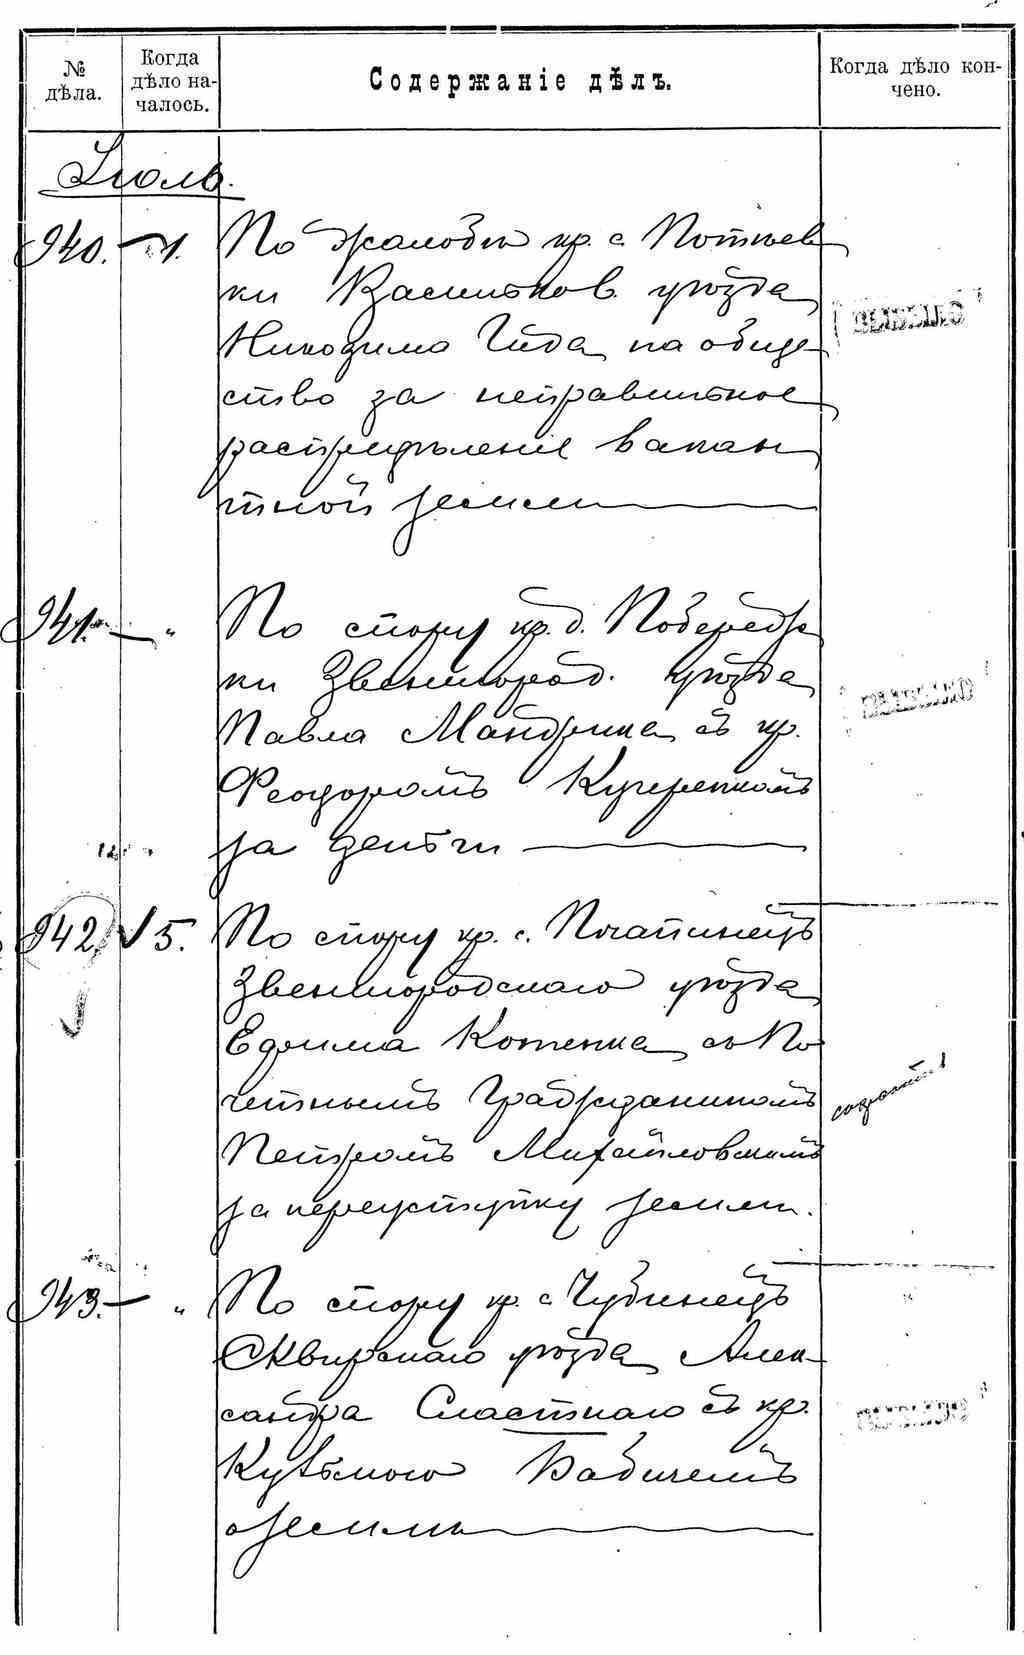 № дѣла.
Когда дѣло на-
чалось.
Содержаніе дѣлъ.
Когда дѣло кон-
чено.
Іюль.
940. 1. По жалобѣ кр. с. Потіев
ки Васильков. уѣзда
Никодима Гида на обще-
ство за неправильное
распредѣленіе вакан
тной земли
941. " По спору кр. д. Побережо
ки Звенигород. уѣзда
Павла Мандрика съ кр.
Феодоромъ Кучеренкомъ
за деньги
942. 5. По спору кр. с. Почапинецъ
Звенигородскаго уѣзда
Ефима Котенка съ По
четнымъ Гражданиномъ
Петромъ Михайловскимъ
за переуступку земли.
сохранить
943. " По спору кр. с. Чубинецъ
Сквирскаго уѣзда Алек-
сандра Сластнаго съ кр.
Кузьмою Бабичемъ
о землѣ